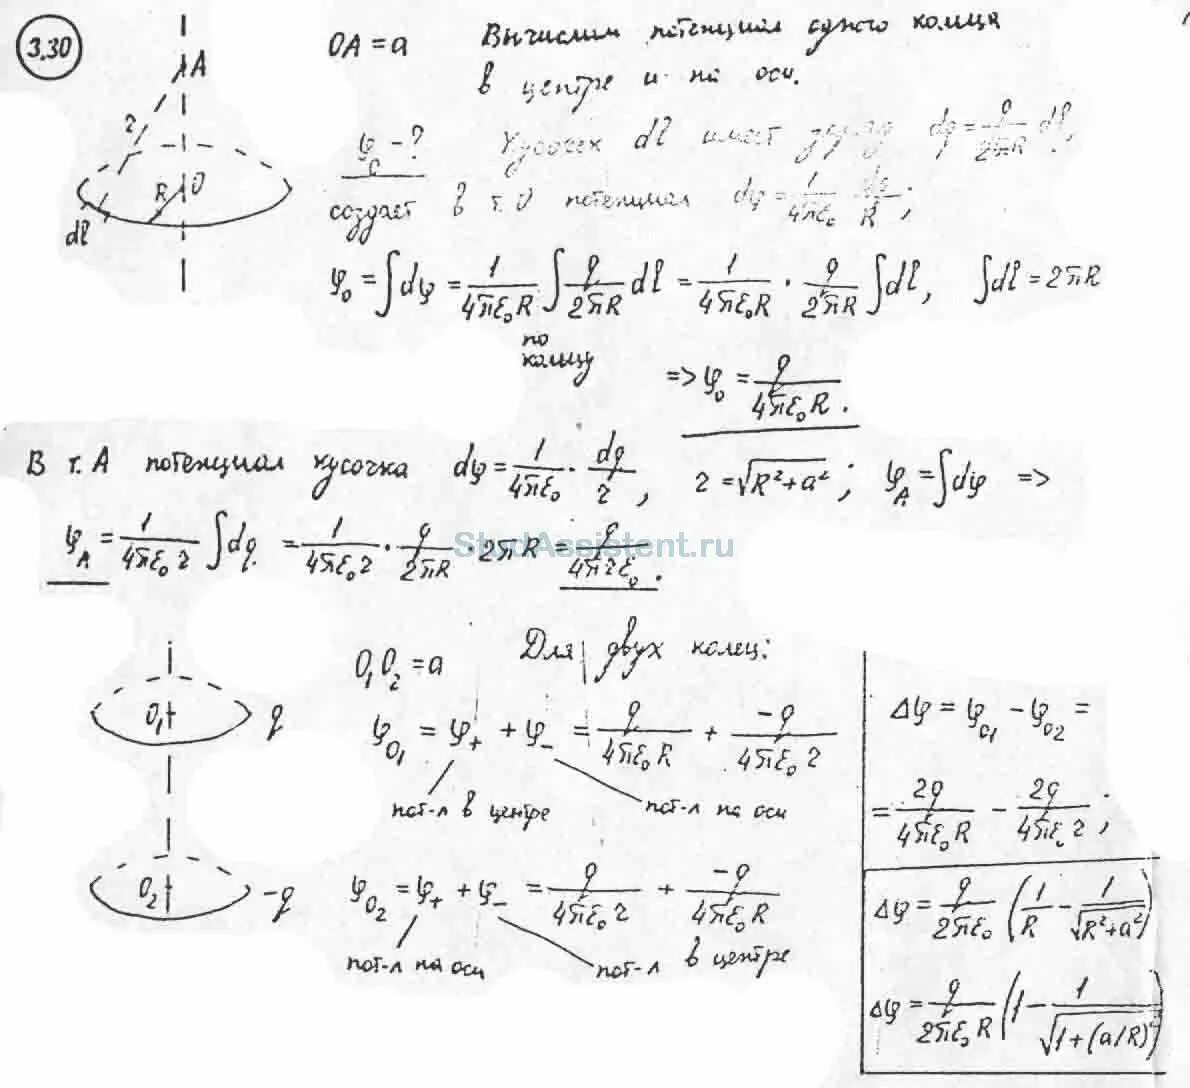 3.30
A
r
R
O
dl
OA = a
Вычислим потенциал одного кольца
в центре и на оси.
φ - ?
Кусочек dl имеет заряд dq = q/2πR dl,
создает в т. O потенциал dφ = 1/4πε₀ dq/R ;
φ₀ = ∫dφ = 1/4πε₀R ∫ q/2πR dl = 1/4πε₀R · q/2πR ∫dl, ∫dl = 2πR
по кольцу
=> φ₀ = q/4πε₀R .
В т. A потенциал кусочка dφ = 1/4πε₀ · dq/r , r = √(R²+a²) ; φ_A = ∫dφ =>
φ_A = 1/4πε₀r ∫dq = 1/4πε₀r · q/2πR · 2πR = q/4πrε₀ .
StudAssistent.ru
O₁O₂ = a
Для двух колец:
O₁
q
φ_O₁ = φ₊ + φ₋ = q/4πε₀R + -q/4πε₀r
пот-л в центре
пот-л на оси
O₂
-q
φ_O₂ = φ₊ + φ₋ = q/4πε₀r + -q/4πε₀R
пот-л на оси
пот-л в центре
Δφ = φ_O₁ - φ_O₂ =
= 2q/4πε₀R - 2q/4πε₀r ;
Δφ = q/2πε₀ (1/R - 1/√(R²+a²))
Δφ = q/2πε₀R (1 - 1/√(1+(a/R)²))